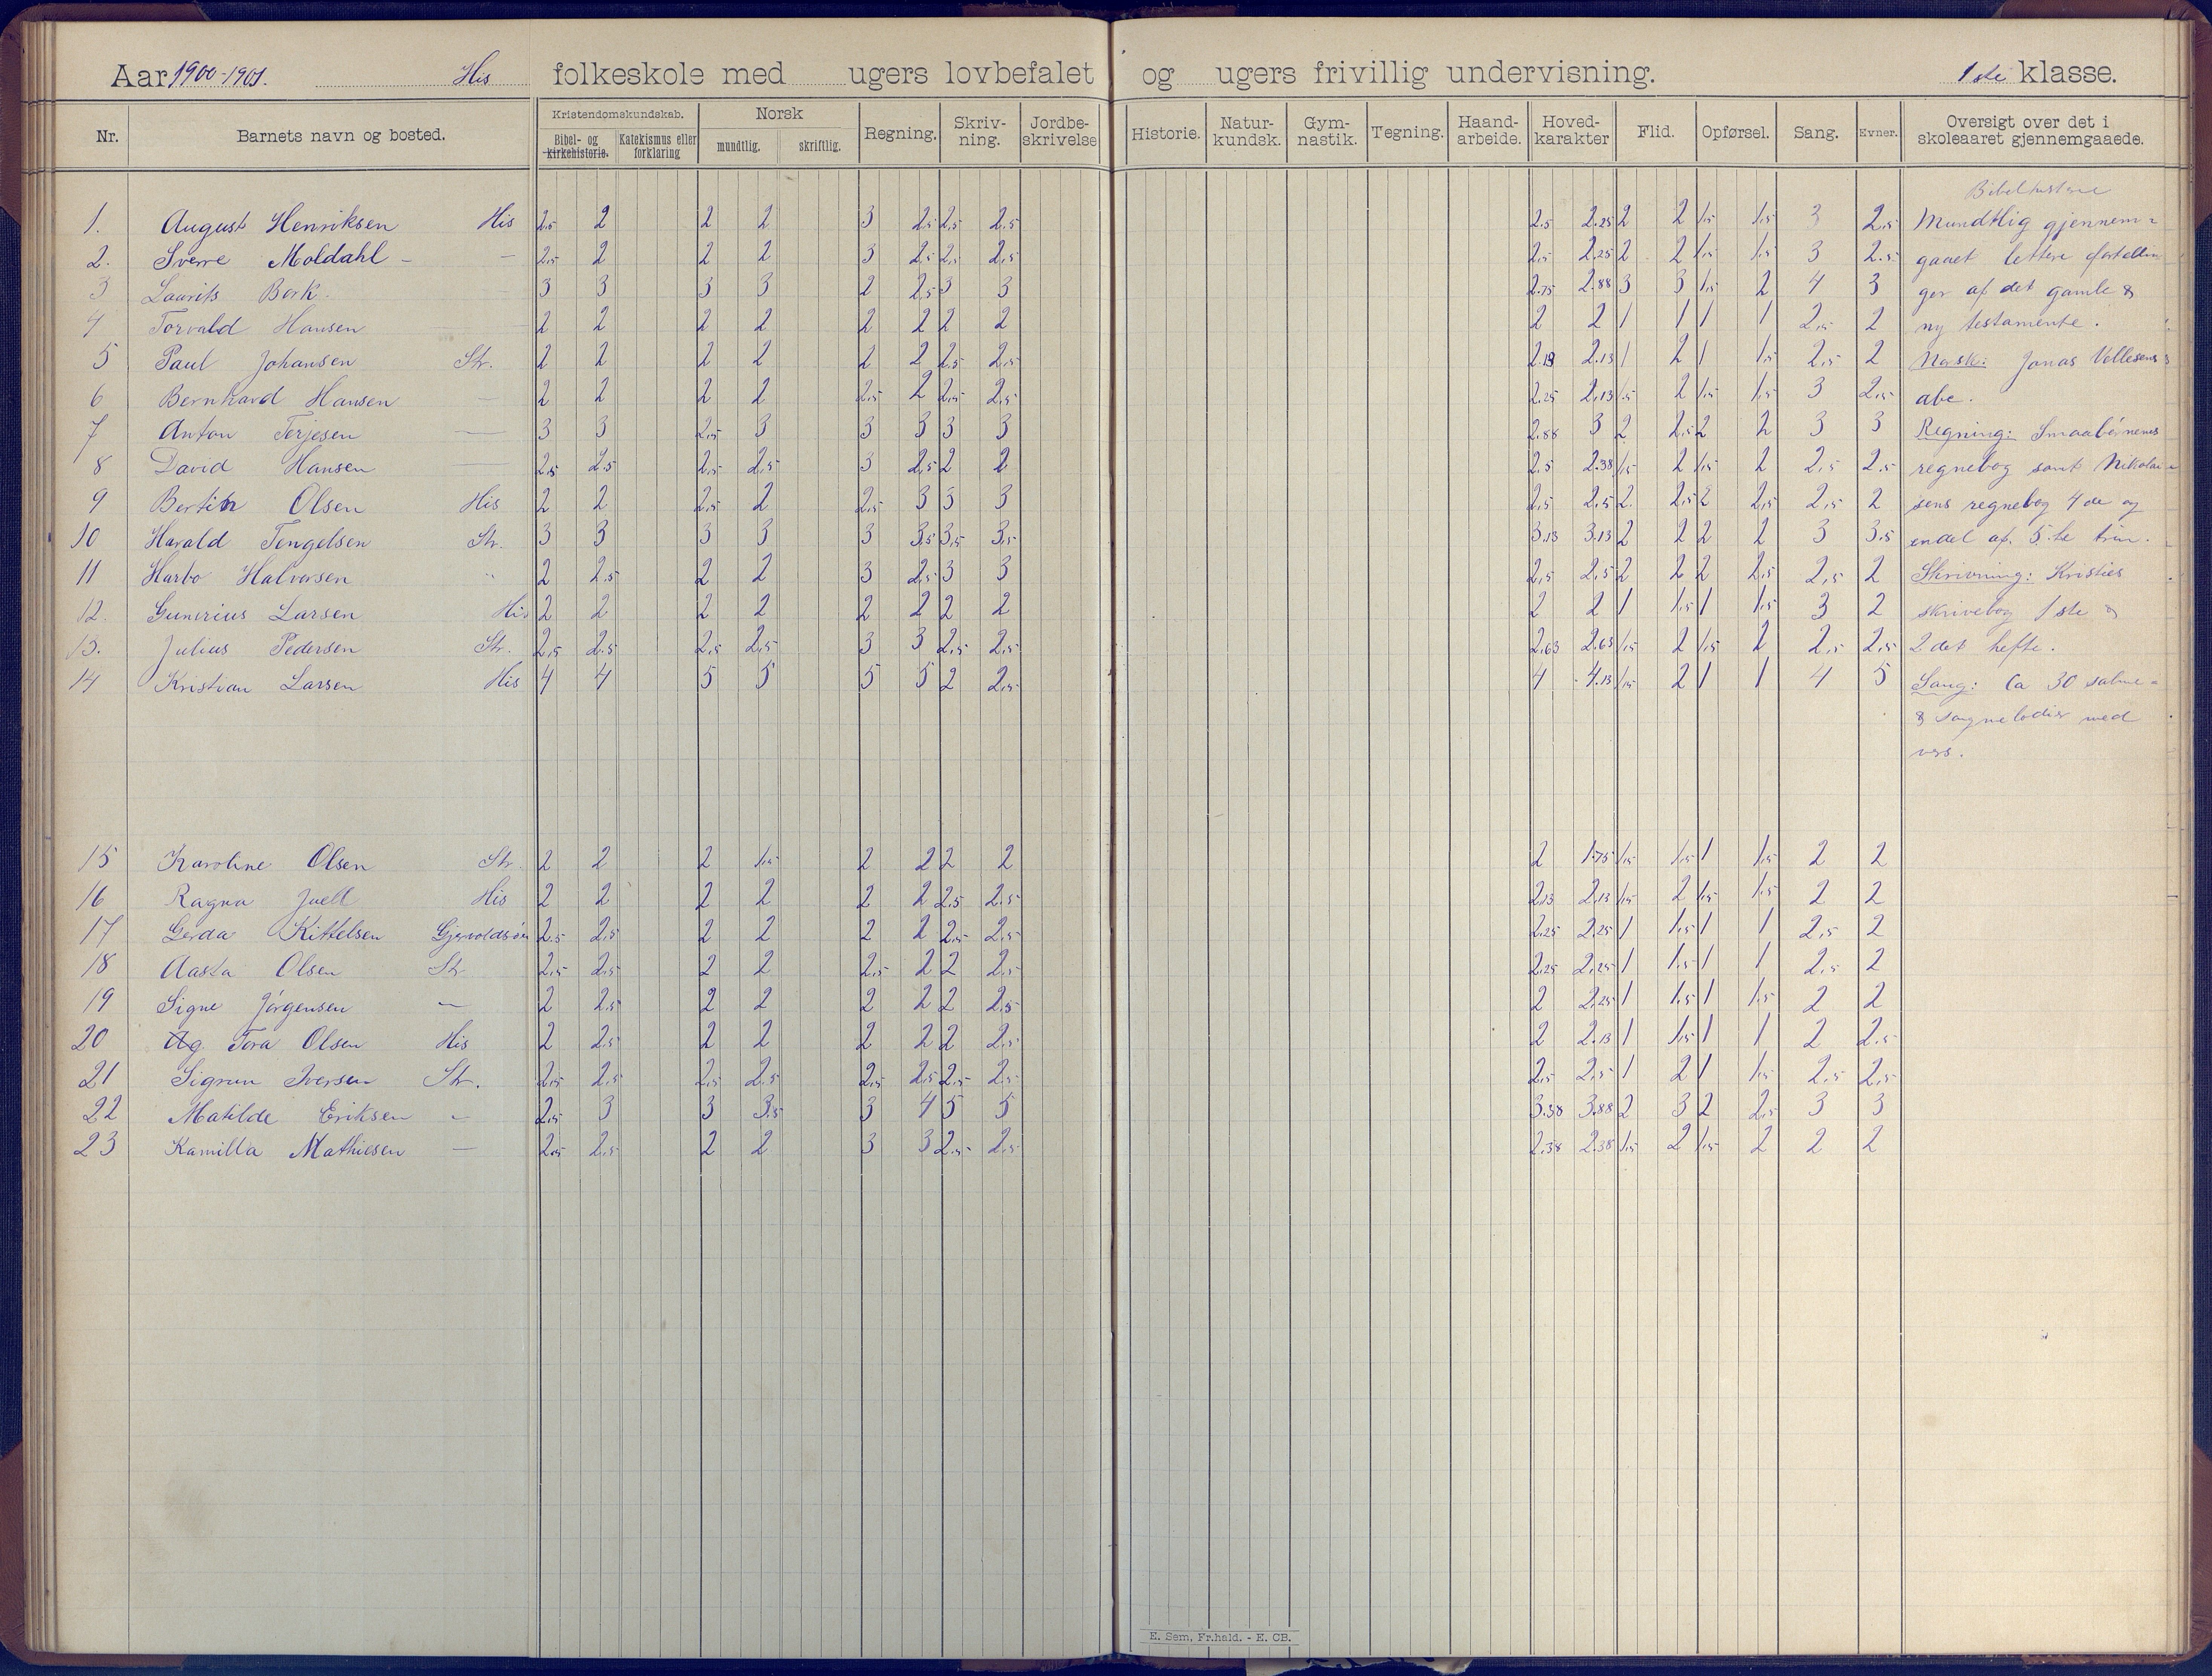 Aar 1900-1901. His folkeskole med ugers lovbefalet og ugers frivillig undervisning. 1ste klasse.
Nr. Barnets navn og bosted. Kristendomskundskab. Bibel- og kirkehistorie. Katekismus eller forklaring Norsk mundtlig. skriftlig. Regning. Skriv-ning. Jordbe-skrivelse Historie. Natur-kundsk. Gym-nastik. Tegning. Haand-arbeide. Hoved-karakter Flid. Opførsel. Sang. Evner. Oversigt over det i skoleaaret gjennemgaaede.
Bibelhistorie
1. August Henriksen His 2.5 2 2 2 3 2.5 2.5 2.5 2.5 2.25 2 2 1.5 1.5 3 2.5 Mundtlig gjennem-
2. Sverre Moldahl - — 2.5 2 2 2 3 2.5 2.5 2.5 2.5 2.25 2 2 1.5 1.5 3 2.5 gaaet lettere fortellin
3 Laurits Bork. 3 3 3 3 2 2.5 3 3 2.75 2.88 3 3 1.5 2 4 3 ger af det gamle &
4 Torvald Hansen 2 2 2 2 2 2 2 2 2 2 1 1 1 1 2.5 2 ny testamente.
5 Paul Johansen Str. 2 2 2 2 2 2 2.5 2.5 2.13 2.13 1 2 1 1.5 2.5 2 Norsk: Jonas Vellesens
6 Bernhard Hansen — 2 2 2 2 2.5 2 2.5 2.5 2.25 2.13 1.5 2 1.5 1.5 3 2.5 abc.
7 Anton Terjesen — 3 3 2.5 3 3 3 3 3 2.88 3 2 2.5 2 2 3 3 Regning: Smaabørnenes
8 David Hansen — 2.5 2.5 2.5 2.5 3 2.5 2 2 2.5 2.38 1.5 2 1.5 2 2.5 2.5 regnebog samt Nikolai-
9 Bertin Olsen His 2 2 2.5 2 2.5 3 3 3 2.5 2.5 2. 2.5 2 2.5 2.5 2 sens regnebog 4de og
10 Harald Tengelsen Str. 3 3 3 3 3 3.5 3.5 3.5 3.13 3.13 2 2 2 2 3 3.5 endel af 5.te trin.
11 Harbo Halvorsen " 2 2.5 2 2 3 2.5 3 3 2.5 2.5 2 2 2 2.5 2.5 2 Skrivning: Kristies
12. Gunerius Larsen His 2 2 2 2 2 2 2 2 2 2 1 1.5 1 1.5 3 2 skrivebog 1ste &
13. Julius Pedersen Str. 2.5 2.5 2.5 2.5 3 3 2.5 2.5 2.63 2.63 1.5 2 1.5 2 2.5 2.5 2det hefte.
14 Kristian Larsen His 4 4 5 5 5 5 2 2.5 4 4.13 1.5 2 1 1 4 5 Sang: Ca 30 salme-
& sangmelodier med
vers.
15 Karoline Olsen Str. 2 2 2 1.5 2 2 2 2 2 1.75 1.5 1.5 1 1.5 2 2
16 Ragna Juell His 2 2 2 2 2 2 2.5 2.5 2.13 2.13 1.5 2 1.5 1.5 2 2
17 Gerda Kittelsen Gjervoldsøen 2.5 2.5 2 2 2 2 2.5 2.5 2.25 2.25 1 1.5 1 1 2.5 2
18 Aasta Olsen Str 2.5 2.5 2 2 2.5 2 2 2.5 2.25 2.25 1 1.5 1 1 2.5 2
19 Signe Jørgensen — 2 2.5 2 2 2 2 2 2.5 2 2.25 1 1.5 1 1.5 2 2
20 Ag Tora Olsen His 2 2.5 2 2 2 2 2 2.5 2 2.13 1 1.5 1 1 2 2.5
21 Sigrun Iversen Str. 2.5 2.5 2.5 2.5 2.5 2.5 2.5 2.5 2.5 2.5 1 2 1 1.5 2.5 2.5
22 Matilde Eriksen - 2.5 3 3 3.5 3 4 5 5 3.38 3.88 2 3 2 2.5 3 3
23 Kamilla Mathiesen — 2.5 2.5 2 2 3 3 2.5 2.5 2.38 2.38 1.5 2 1.5 2 2 2
E. Sem, Fr.hald. - E. CB.